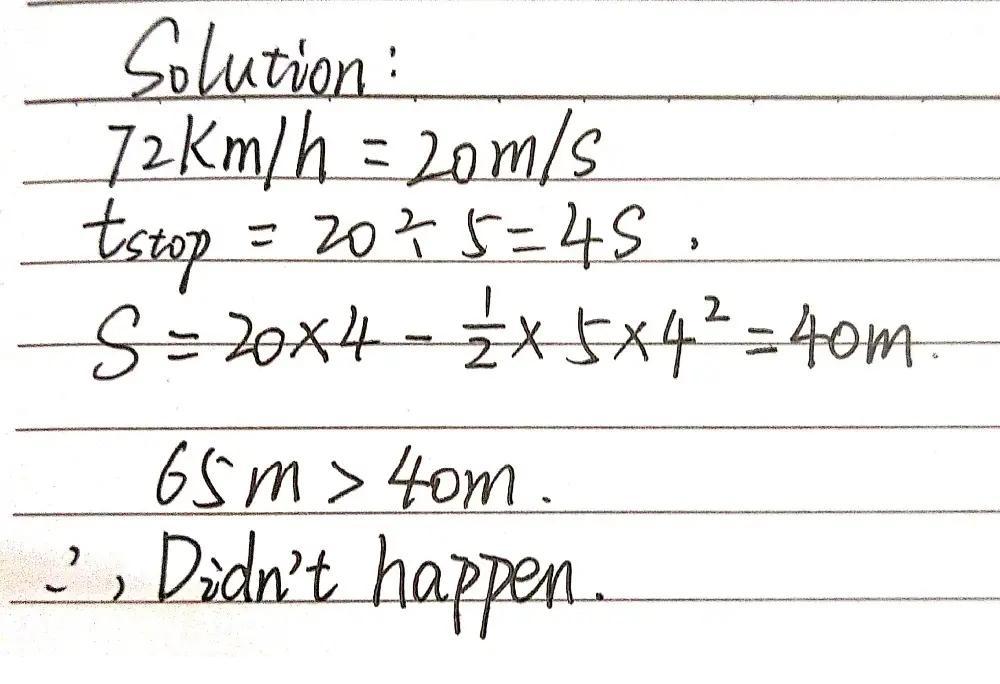 Solution:
72Km/h = 20m/s
tstop = 20 ÷ 5 = 4S.
S = 20×4 - 1/2 × 5 × 4² = 40m.
65m > 40m.
∴, Didn't happen.